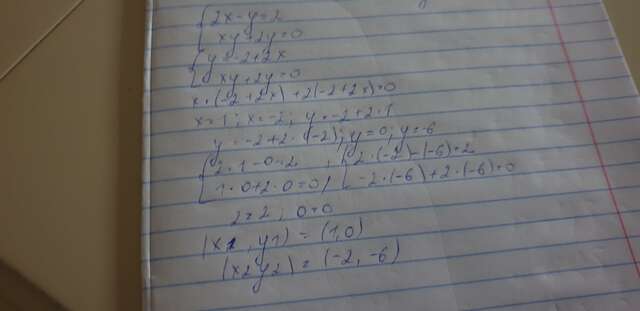 {2x-y=2
xy+2y=0
{y=-2+2x
xy+2y=0
x·(-2+2x)+2(-2+2x)=0
x=1; x=-2; y=-2+2·1
y=-2+2·(-2); y=0; y=-6
{2·1-0=2, {2·(-2)-(-6)=2
1·0+2·0=0 -2·(-6)+2·(-6)=0
2=2; 0=0
(x1, y1)=(1,0)
(x2 y2)=(-2,-6)